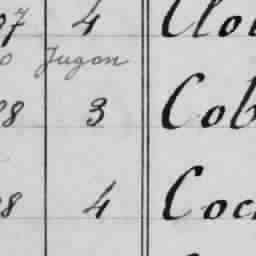 97 4 Clo
0 Jugon
98 3 Cob
98 4 Coc